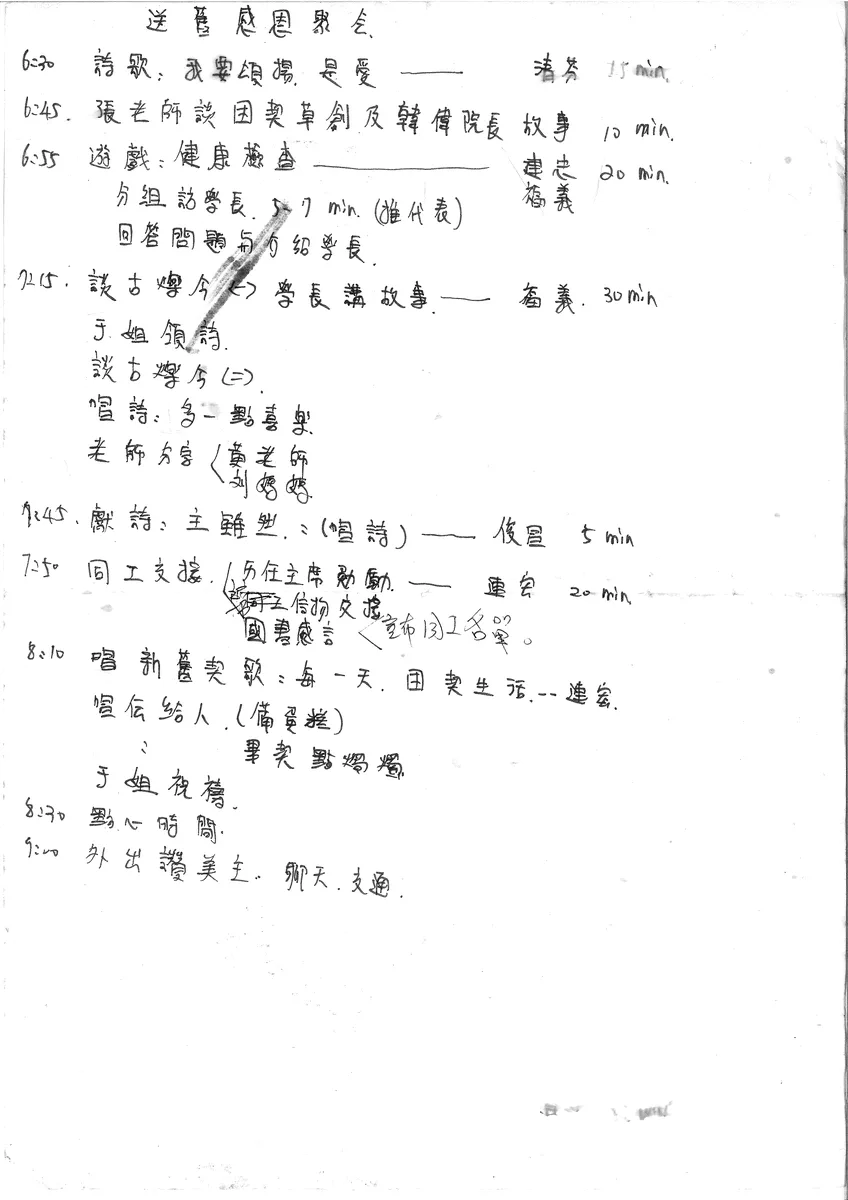 送舊感恩聚会
6:30 詩歌：我要頌揚、是愛 —— 清芬 15 min.
6:45. 張老師談团契草創及韓偉院長故事 10 min.
6:55 遊戲：健康檢查 —— 建忠 20 min.
福義
分組訪學長. 5~7 min. (推代表)
回答問題与介紹學長.
7:15. 談古爍今(一) 學長講故事. —— 福義. 30 min
于姐領詩.
談古爍今(二).
唱詩：多一點喜樂.
老師分享 〈黃老師
刘媽媽.
7:45. 獻詩：主雖然.：(唱詩) —— 俊昌 5 min
7:50 同工交接. 历任主席勋勳. —— 連宏 20 min.
同工信物交接
國書感言 〈宣布同工名單。
8:10 唱新舊契歌：每一天. 团契生活. -- 連宏.
宣伝給人. (備蛋糕)
： 畢契點燭燭.
于姐祝禱.
8:30 點心時間.
9:00 外出讚美主.. 聊天. 交通.